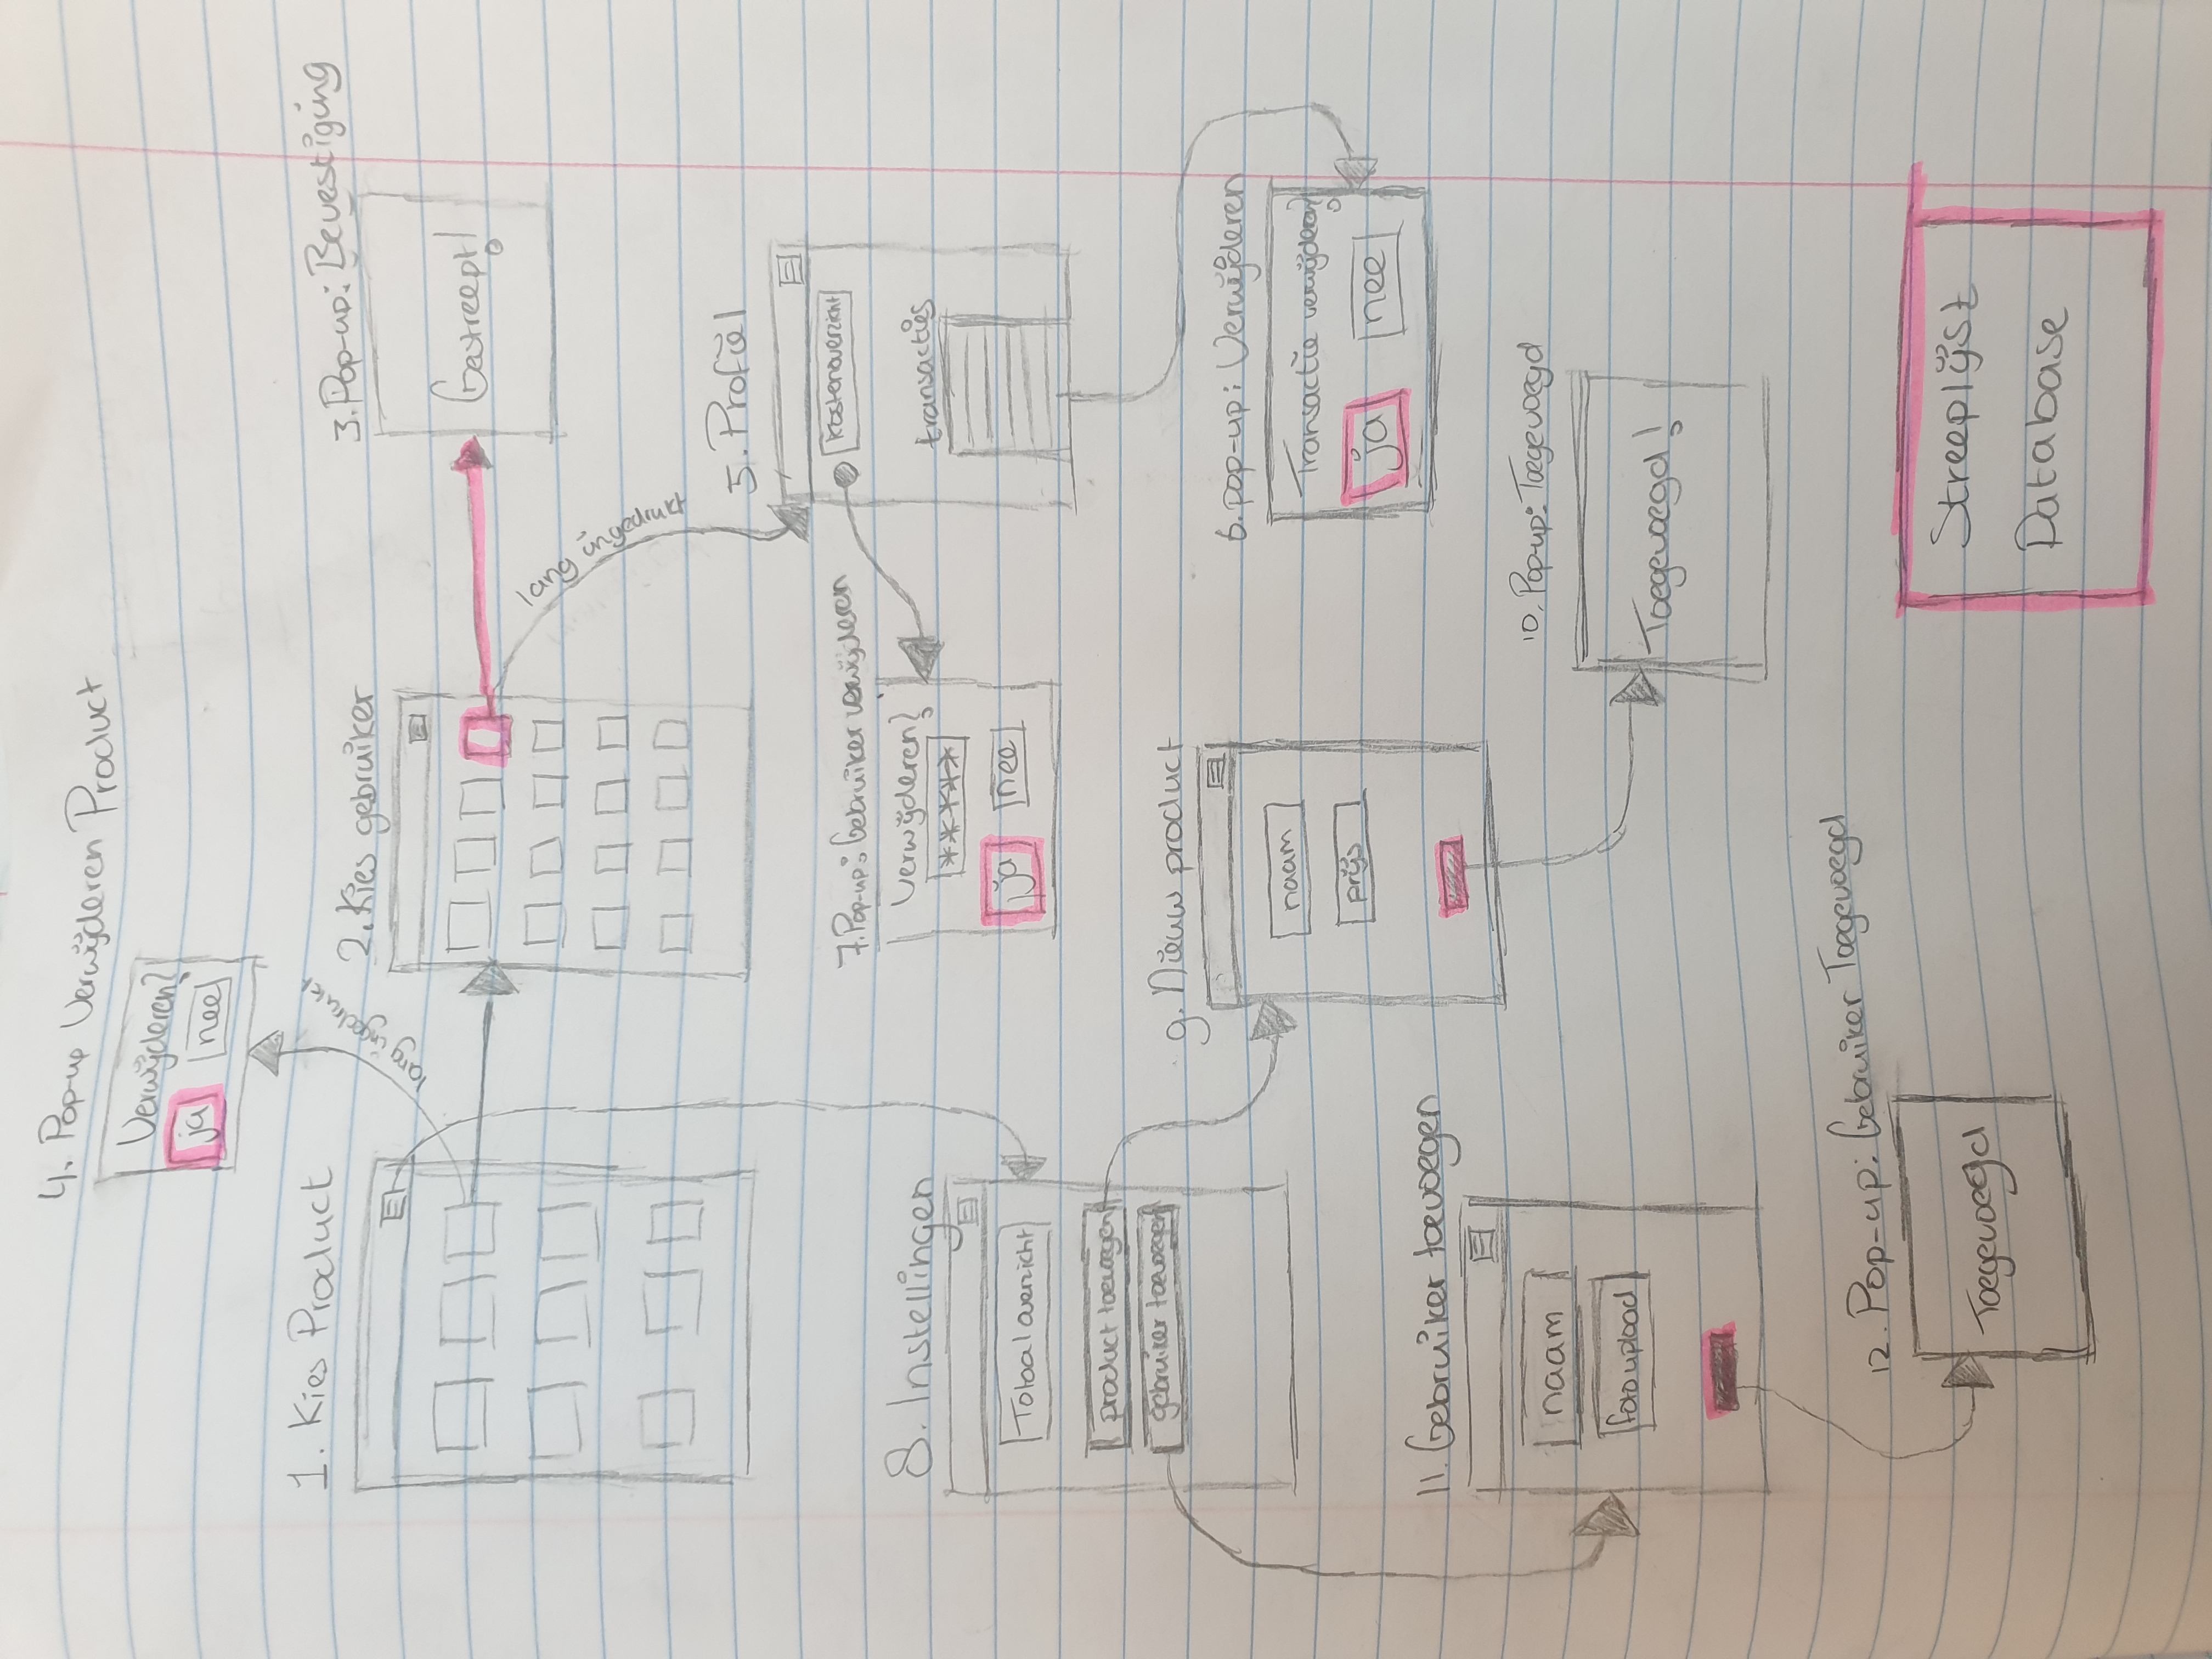 4. Pop-up Verwijderen Product
Verwijderen?
ja
nee
1. Kies Product
lang ingedrukt
2. Kies gebruiker
3. Pop-up: Bevestiging
Gestreept!
lang ingedrukt
5. Profiel
kostenoverzicht
transacties
7. Pop-up: Gebruiker verwijderen
Verwijderen?
*****
ja
nee
8. Instellingen
Totaal overzicht
product toevoegen
gebruiker toevoegen
9. Nieuw product
naam
prijs
6. pop-up: Verwijderen
Transactie verwijderen?
ja
nee
11. Gebruiker toevoegen
naam
foto upload
10. Pop-up: Toegevoegd
Toegevoegd!
12. Pop-up: Gebruiker Toegevoegd
Toegevoegd
Streeplijst
Database